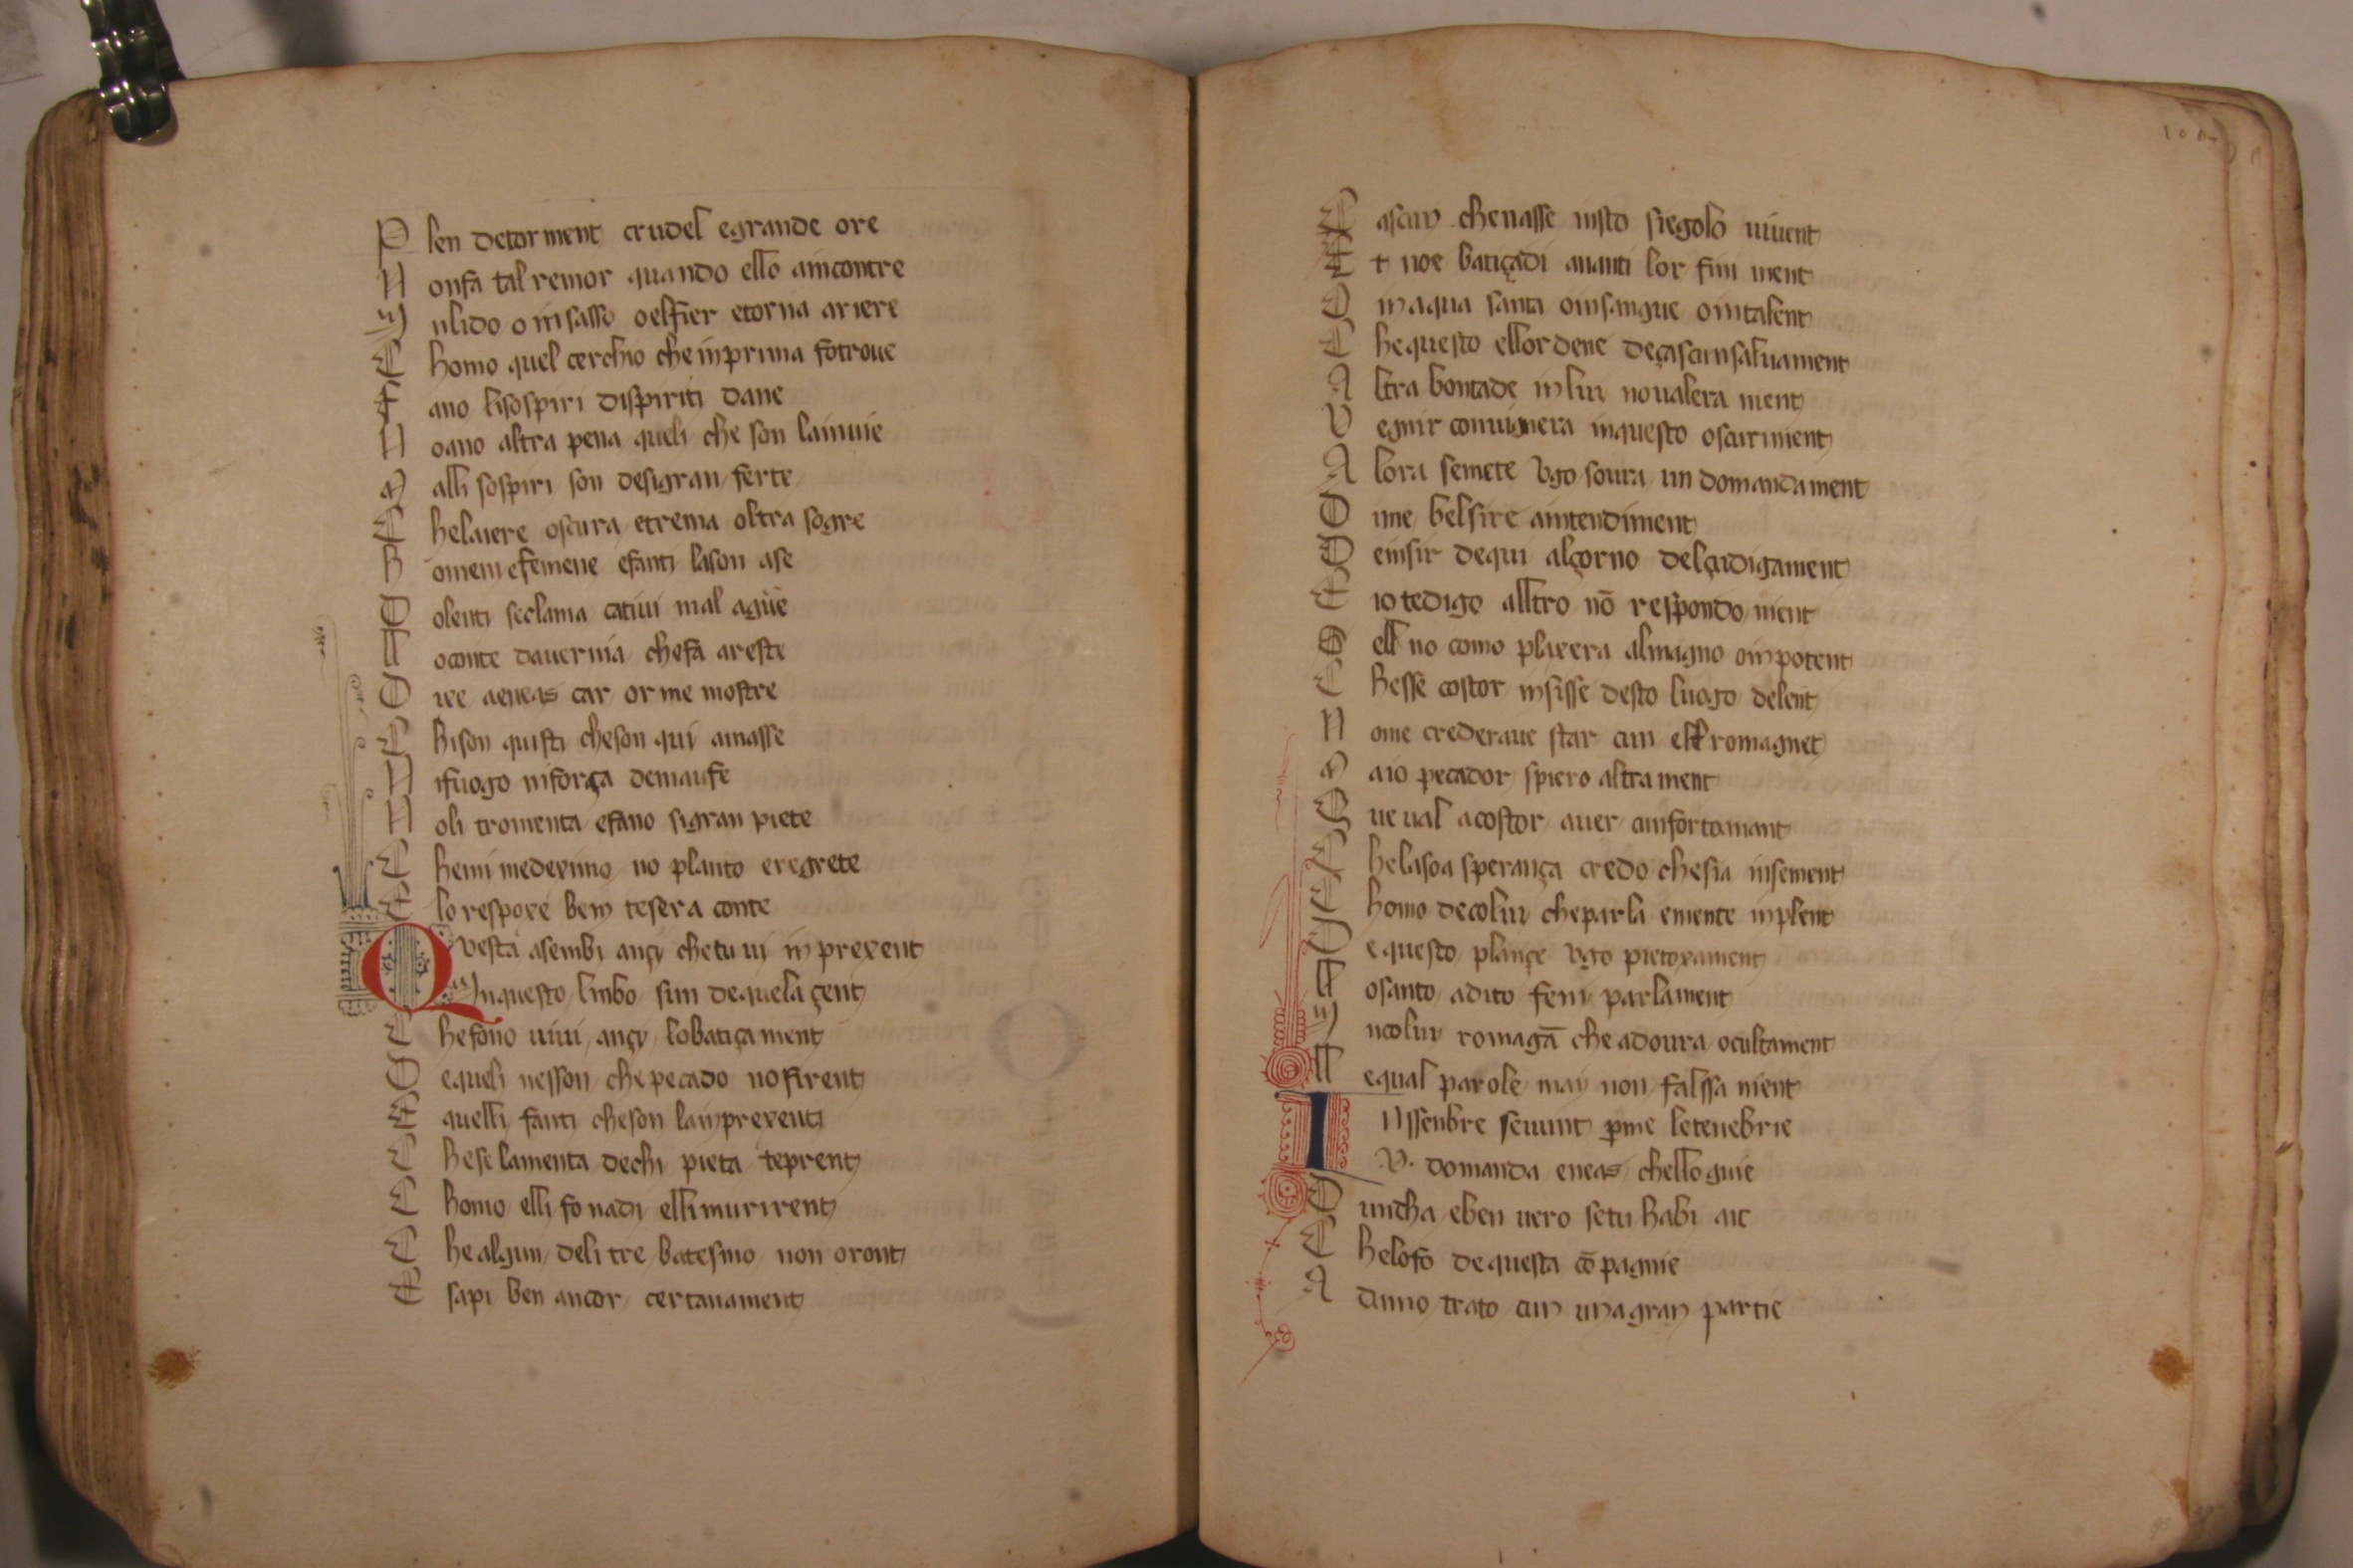 P len detorment crudel egrande ore
N onfa tal remor quando ello aincontre
I nlido o insasso oelfier etorna ariere
C homo quel cerchio che inprima fotroue
F ano lisospiri dispiriti dane
N oano altra pena queli che son lainuie
M alli sospiri son desigran ferte
C helaiere oscura etrema oltra sogre
H omeni efemene efanti lason ase
D olenti seclama catiui mal ague
L oconte dauernia chefa areste
D ixe aeneas car or me mostre
C hison quisti cheson qui amasse
N ifuogo niforça demaufe
N oli tromenta efano sigran piete
C hemi medeximo no planto eregrete
E lo respoxe bem tesera conte
Q vesta asembi ançi chetu ui in prexent
I nquesto linbo sun dequela çent
C hefono uiui ançi lobatiçament
D equeli nesson chepecado nofirent
E quelli fanti cheson lainprexent
C hese lamenta dechi pieta teprent
C homo elli fo nadi ellimurirent
C he algun deli tre batesmo non oront
E sapi ben ancor certanament
C ascun chenasse insto siegolo uiuent
E t noe batiçadi auanti lor fini ment
O inaqua santa oinsangue ointalent
C hequesto ellordene deçascunsaluament
A ltra bontade inlui noualera nient
V egnir conuignera inquesto oscuriment
A lora semete vgo soura un domandament
O ime belsire aintendiment
D einsir dequi alçorno delçudigament
E io tedigo alltro nō respondo nient
S ell no como plaxera almagno oinpotent
C hesse costor insisse desto luogo delent
N ome crederaue star cun ell romagnet
M aio pecador spiero altrament
C ue ual acostor auer cunfortamant
C helasoa sperança credo chesia insement
C homo decolui cheparla emente inplent
D e questo plançe vgo pietoxament
L osanto adito feni parlament
I ncolui romagā che adoura ocultament
L equal parole mai non falssa nient
I Nssenbre seuunt ꝑme letenebrie
.V. domanda eneas chello guie
D uncha eben uero setu habi aie
C helofo dequesta cō pagnie
A dimo trato cun unagran partie